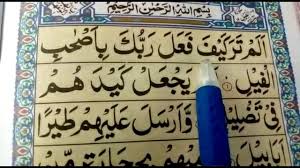 بِسْمِ اللهِ الرَّحْمٰنِ الرَّحِيْمِ
اَلَمْ تَرَ كَيْفَ فَعَلَ رَبُّكَ بِاَصْحٰبِ
الْفِيْلِ ۝١ يَجْعَلْ كَيْدَ هُمْ
فِيْ تَضْلِيْ وَّاَرْسَلَ عَلَيْهِمْ طَيْرًا
بِحِجَارَةٍ مِّنْ